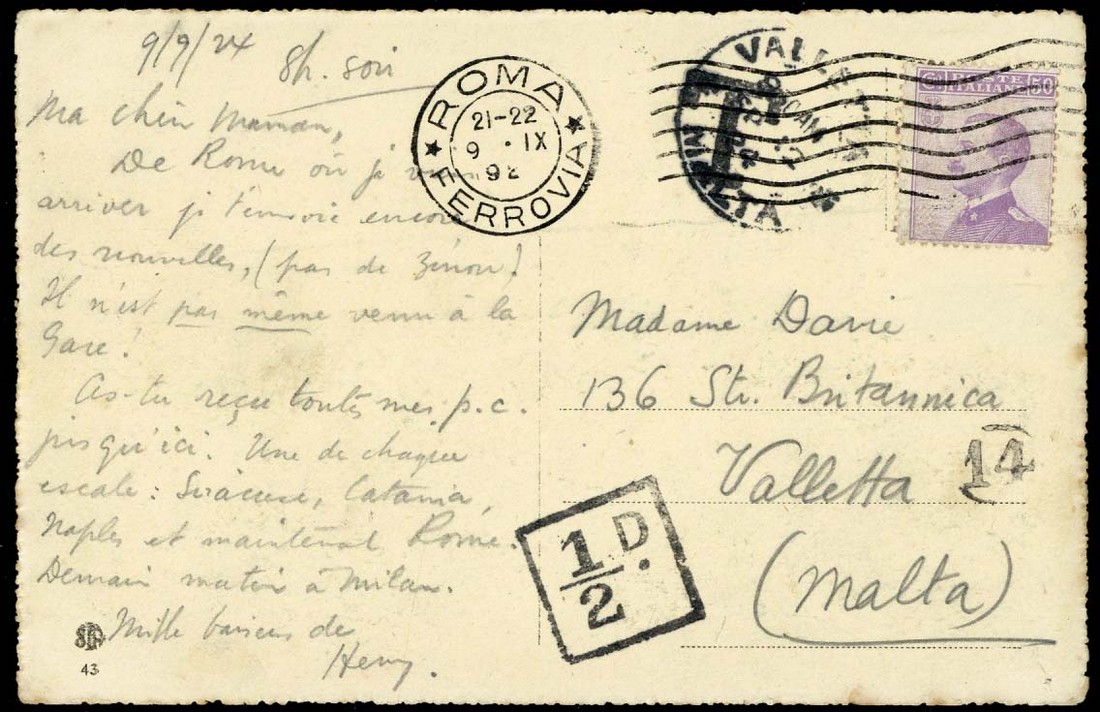 9/9/24 8h. soir
Ma chère Maman,
De Rome où je viens
arriver je t'envoie encore
des nouvelles, (pas de Zénon!
Il n'est pas même venu à la
Gare!
As-tu reçu toutes mes p.c.
jusqu'ici. Une de chaque
escale: Siracuse, Catania,
Naples et maintenant Rome.
Demain matin à Milan.
Mille baisers de
Henry.
43
ROMA
21-22
9 . IX
92
FERROVIA
VALLETTA
MALTA
T
CMI POSTE 50
ITALIANE
Madame Davie
136 Str. Britannica
Valletta
(Malta)
14
1/2 D.